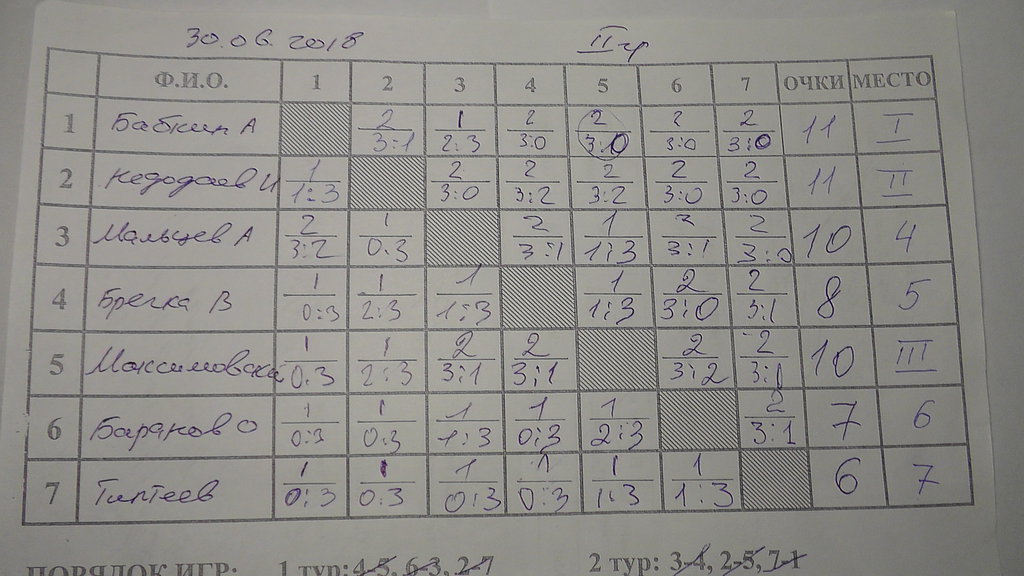 30.06.2018 II гр
Ф.И.О. 1 2 3 4 5 6 7 ОЧКИ МЕСТО
1 Бабкин А 2 3:1 1 2:3 2 3:0 2 3:0 2 3:0 2 3:0 11 I
2 Недодаев И 1 1:3 2 3:0 2 3:2 2 3:2 2 3:0 2 3:0 11 II
3 Мальцев А 2 3:2 1 0:3 2 3:1 1 1:3 2 3:1 2 3:0 10 4
4 Брегка В 1 0:3 1 2:3 1 1:3 1 1:3 2 3:0 2 3:1 8 5
5 Максимовская 1 0:3 1 2:3 2 3:1 2 3:1 2 3:2 2 3:1 10 III
6 Баранов О 1 0:3 1 0:3 1 1:3 1 0:3 1 2:3 2 3:1 7 6
7 Типтеев 1 0:3 1 0:3 1 0:3 1 0:3 1 1:3 1 1:3 6 7
ПОРЯДОК ИГР: 1 тур: 4-5, 6-3, 2-7 2 тур: 3-4, 2-5, 7-1